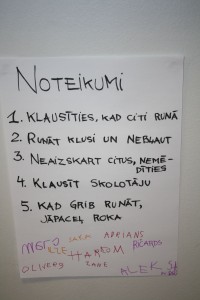 NOTEIKUMI
1. KLAUSĪTIES, KAD CITI RUNĀ
2. RUNĀT KLUSI UN NEBĻAUT
3. NEAIZSKART CITUS, NEMĒ-
DĪTIES
4. KLAUSĪT SKOLOTĀJU
5. KAD GRIB RUNĀT,
JĀPACEĻ ROKA
ADRIANS
RIČARDS
OLIVERS